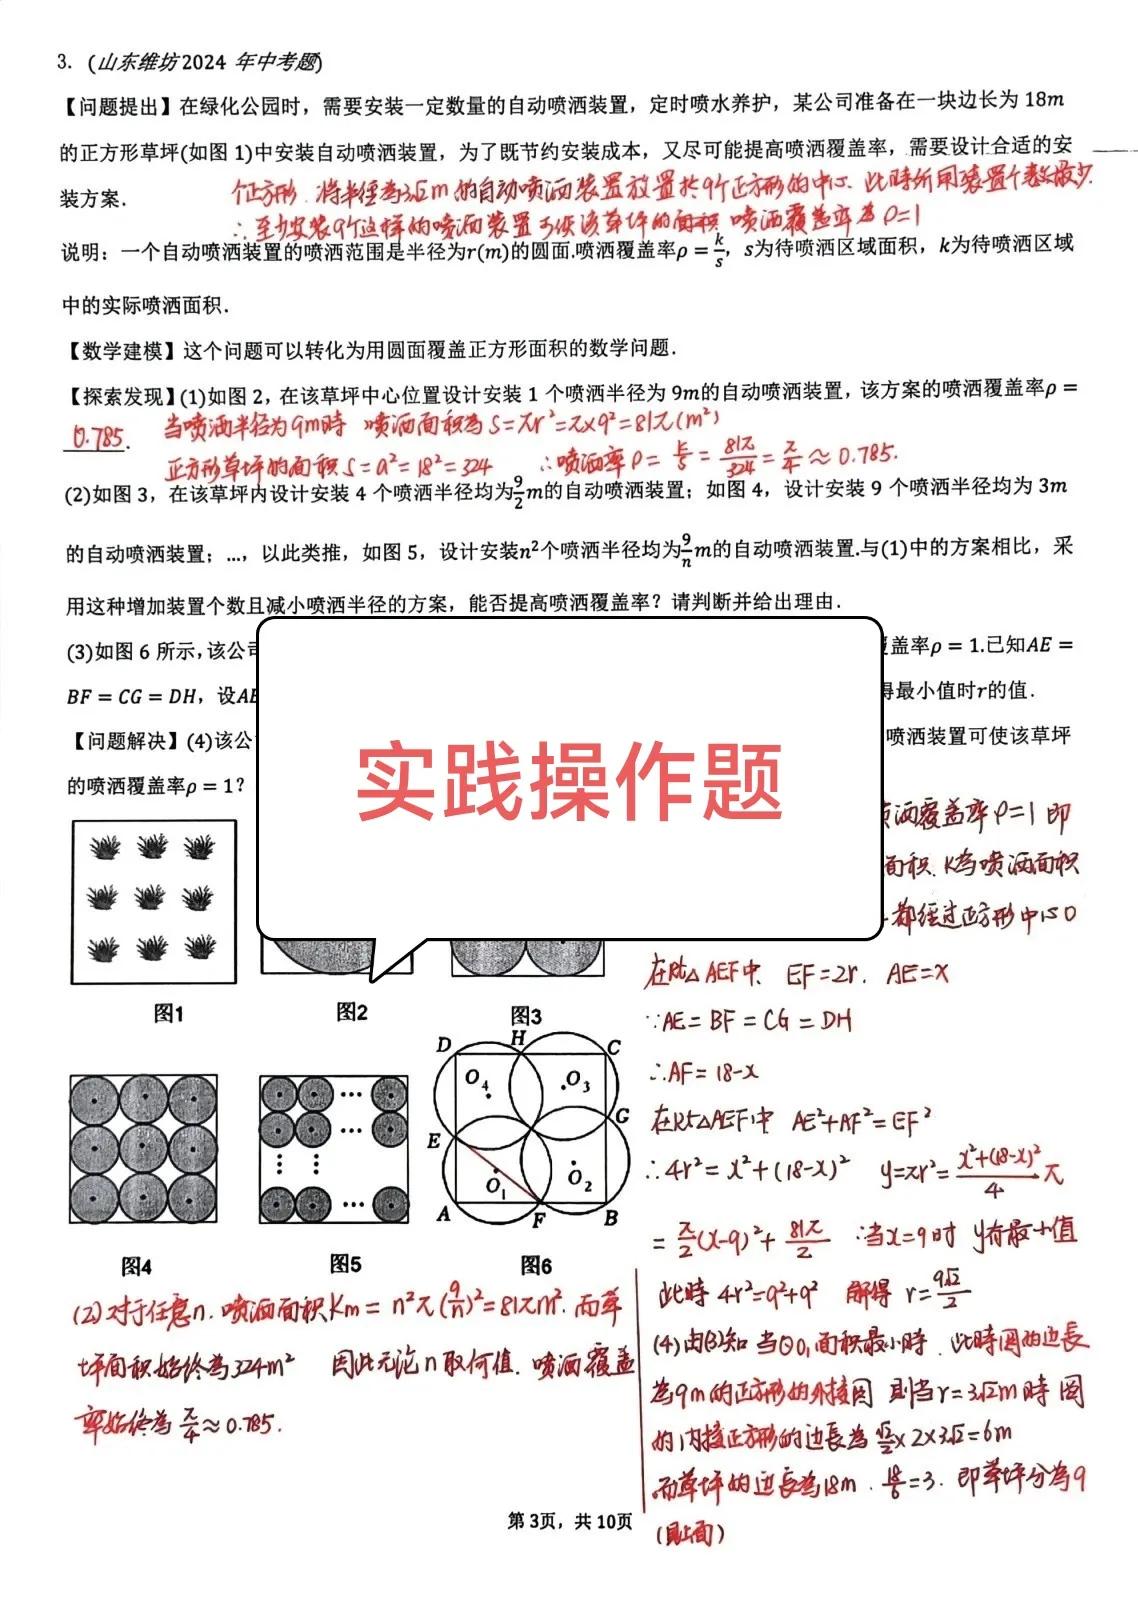 3. (山东维坊2024 年中考题)
【问题提出】在绿化公园时，需要安装一定数量的自动喷洒装置，定时喷水养护，某公司准备在一块边长为 18m
的正方形草坪(如图 1)中安装自动喷洒装置，为了既节约安装成本，又尽可能提高喷洒覆盖率，需要设计合适的安
装方案.
个正方形. 将半径为3√2m 的自动喷洒装置放置於9个正方形的中心. 此时所用装置个数最少.
∴至少安装9个这样的喷洒装置可使该草坪的面积 喷洒覆盖率为 ρ=1
说明：一个自动喷洒装置的喷洒范围是半径为r(m)的圆面.喷洒覆盖率ρ=k/s，s为待喷洒区域面积，k为待喷洒区域
中的实际喷洒面积.
【数学建模】这个问题可以转化为用圆面覆盖正方形面积的数学问题.
【探索发现】(1)如图 2，在该草坪中心位置设计安装 1 个喷洒半径为 9m的自动喷洒装置，该方案的喷洒覆盖率ρ=
0.785. 当喷洒半径为9m時 喷洒面积為 S=πr²=π×9²=81π(m²)
正方形草坪的面积 S=a²=18²=324 ∴喷洒率 ρ= k/s = 81π/324 = π/4 ≈ 0.785.
(2)如图 3，在该草坪内设计安装 4 个喷洒半径均为9/2m的自动喷洒装置；如图 4，设计安装 9 个喷洒半径均为 3m
的自动喷洒装置；…，以此类推，如图 5，设计安装n²个喷洒半径均为9/n m的自动喷洒装置.与(1)中的方案相比，采
用这种增加装置个数且减小喷洒半径的方案，能否提高喷洒覆盖率？请判断并给出理由.
(3)如图 6 所示，该公
盖率ρ = 1.已知AE =
BF = CG = DH，设AE
得最小值时r的值.
【问题解决】(4)该公
喷洒装置可使该草坪
的喷洒覆盖率ρ=1？
实践操作题
洒覆盖率 ρ=1 即
面积. K為喷洒面积
都经过正方形中心O
在Rt△AEF中. EF=2r. AE=x
图1
图2
图3
∵AE=BF=CG=DH
∴AF=18-x
在Rt△AEF中 AE²+AF²=EF²
∴4r²=x²+(18-x)² y=πr²= x²+(18-x)²/4 π
= π/2(x-9)²+ 81π/2 ∴当x=9时 y有最小值
此時 4r²=9²+9² 解得 r=9√2/2
D H C
O₄ O₃
G
E
O₁ O₂
A F B
图4
图5
图6
(2)对于任意n. 喷洒面积Km= n²π(9/n)²=81πm². 而草
坪面积始终為324m² 因此无论n取何值. 喷洒覆盖
率始终為 π/4≈0.785.
(4)由(3)知 当⊙O₁面积最小時. 此時圆的边長
為9m的正方形的外接圆 则当r=3√2m時 圆
的内接正方形的边長為 √2/2×2×3√2=6m
而草坪的边長為18m. 18/6=3. 即草坪分為9
(见上面)
第 3页，共 10页